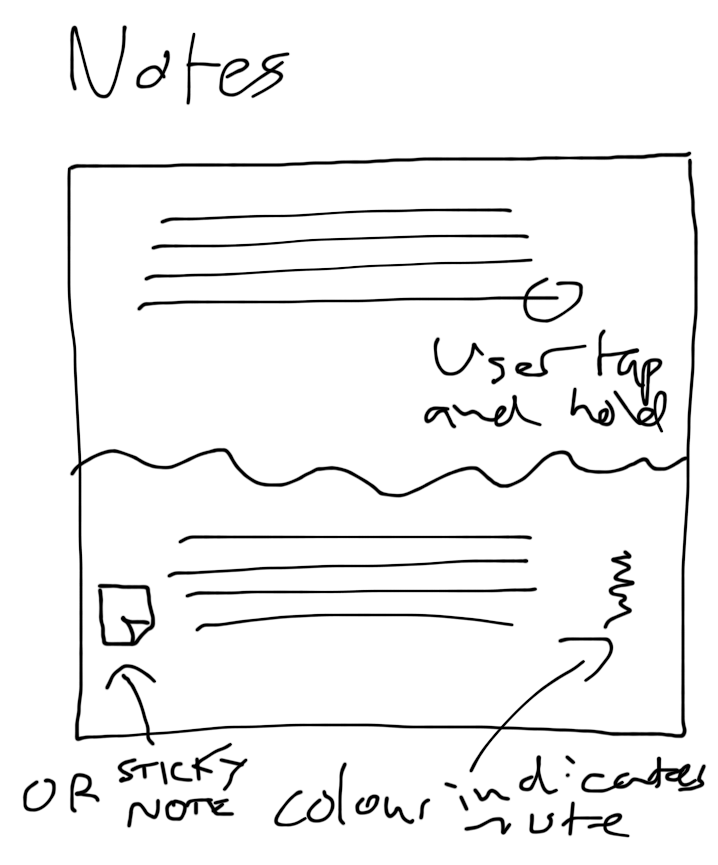 Notes
User tap
and hold
OR STICKY
NOTE
colour indicates
note